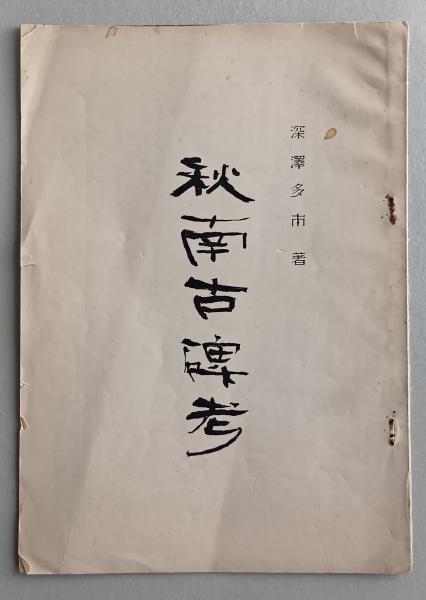 深澤多市著
秋南古碑考